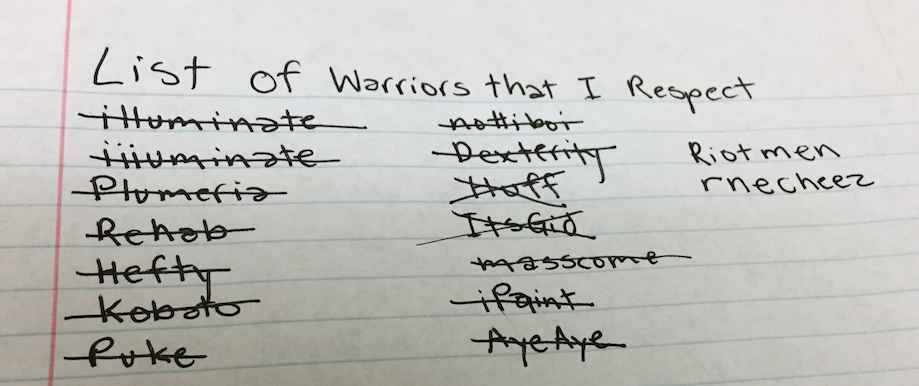 List of Warriors that I Respect
illuminate
iiiuminate
Plumeria
Rehab
Hefty
Kobato
Puke
nottiboi
Dexterity
Hoff
ItsGid
masscome
iPaint
AyeAye
Riotmen
rnecheez